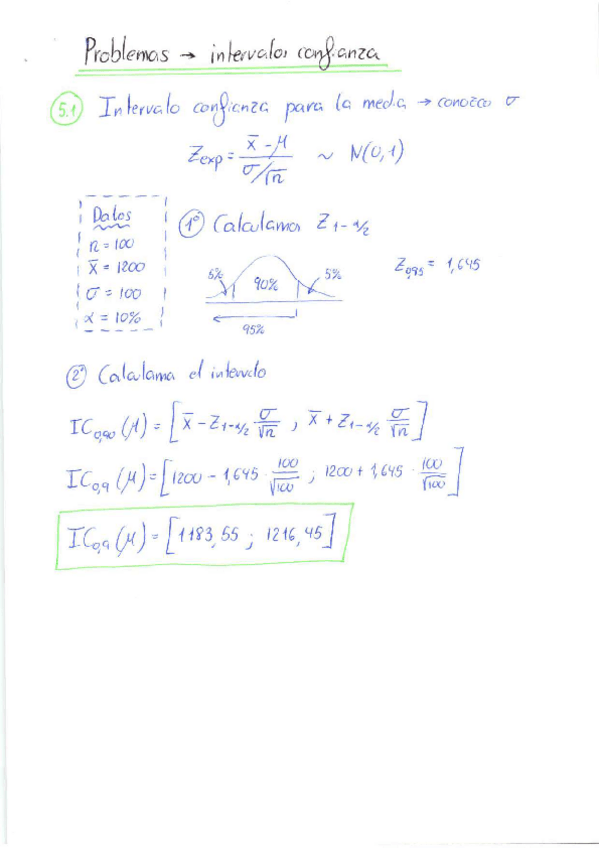 Problemas → intervalos confianza
5.1 Intervalo confianza para la media → conozco σ
Zexp = (x̄ - μ) / (σ/√n) ~ N(0,1)
Datos
n = 100
x̄ = 1200
σ = 100
α = 10%
1º Calculamos Z1-α/2
5% 90% 5%
95%
Z0,95 = 1,645
2º Calculama el intervalo
IC0,90 (μ) = [x̄ - Z1-α/2 σ/√n , x̄ + Z1-α/2 σ/√n]
IC0,9 (μ) = [1200 - 1,645 · 100/√100 ; 1200 + 1,645 · 100/√100]
IC0,9 (μ) = [1183,55 ; 1216,45]